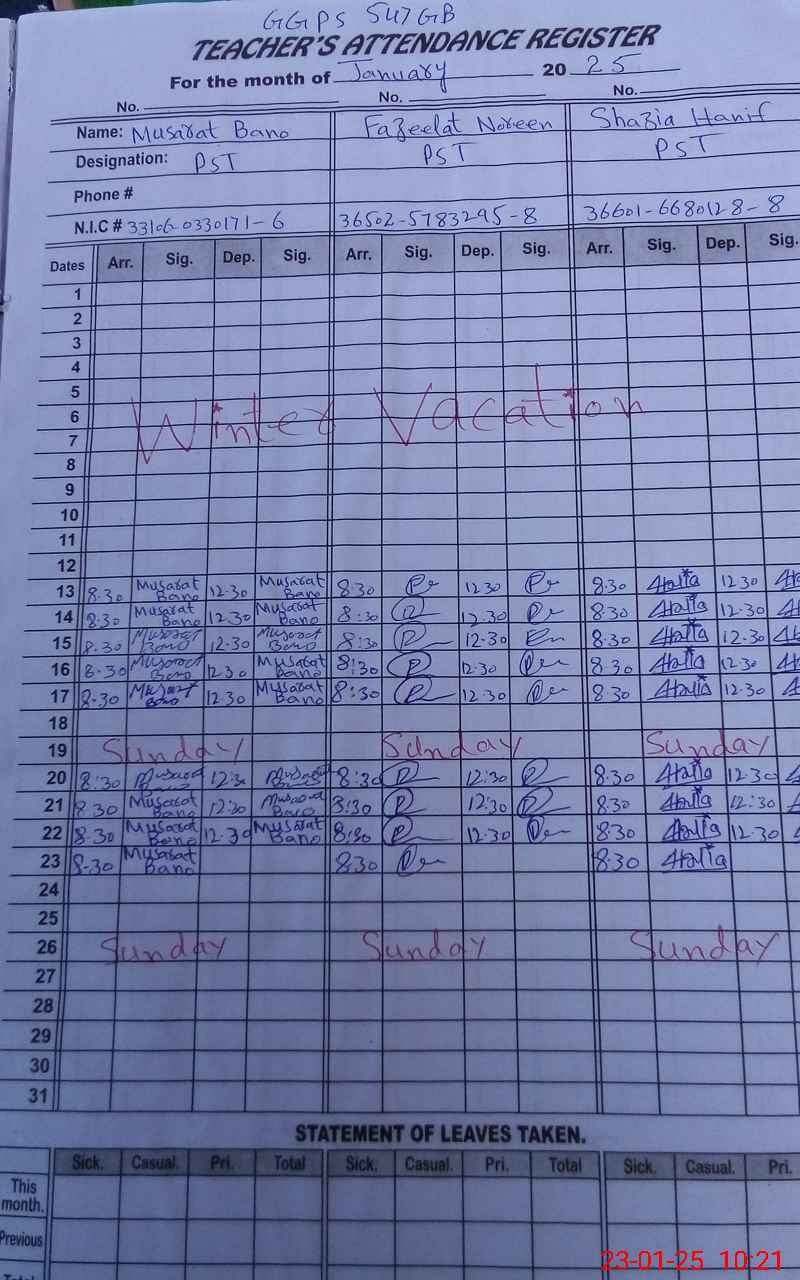 GGPS 547GB
TEACHER'S ATTENDANCE REGISTER
For the month of January 20 25
No. No. No.
Name: Musarat Bano Fazeelat Noreen Shazia Hanif
Designation: PST PST PST
Phone #
N.I.C # 33106-0330171-6 36502-5783295-8 36601-6680128-8
Dates Arr. Sig. Dep. Sig. Arr. Sig. Dep. Sig. Arr. Sig. Dep. Sig.
1
2
3
4
5
6 Winter Vacation
7
8
9
10
11
12
13 8.30 Musarat Bano 12.30 Musarat Bano 8.30 12.30 8.30 12.30
14 8.30 Musarat Bano 12.30 Musarat Bano 8:30 12.30 8.30 12.30
15 8.30 Musarat Bano 12.30 Musarat Bano 8:30 12.30 8.30 12.30
16 8.30 Musarat Bano 12.30 Musarat Bano 8:30 12.30 8.30 12.30
17 8.30 Musarat Bano 12.30 Musarat Bano 8:30 12.30 8.30 12.30
18
19 Sunday Sunday Sunday
20 8:30 Musarat Bano 12:30 Musarat Bano 8:30 12:30 8.30 12.30
21 8.30 Musarat Bano 12:30 Musarat Bano 8:30 12:30 8.30 12:30
22 8.30 Musarat Bano 12.30 Musarat Bano 8:30 12.30 8.30 12.30
23 8.30 Musarat Bano 8.30 8.30
24
25
26 Sunday Sunday Sunday
27
28
29
30
31
STATEMENT OF LEAVES TAKEN.
Sick. Casual. Pri. Total Sick. Casual. Pri. Total Sick. Casual. Pri.
This month.
Previous
23-01-25 10:21